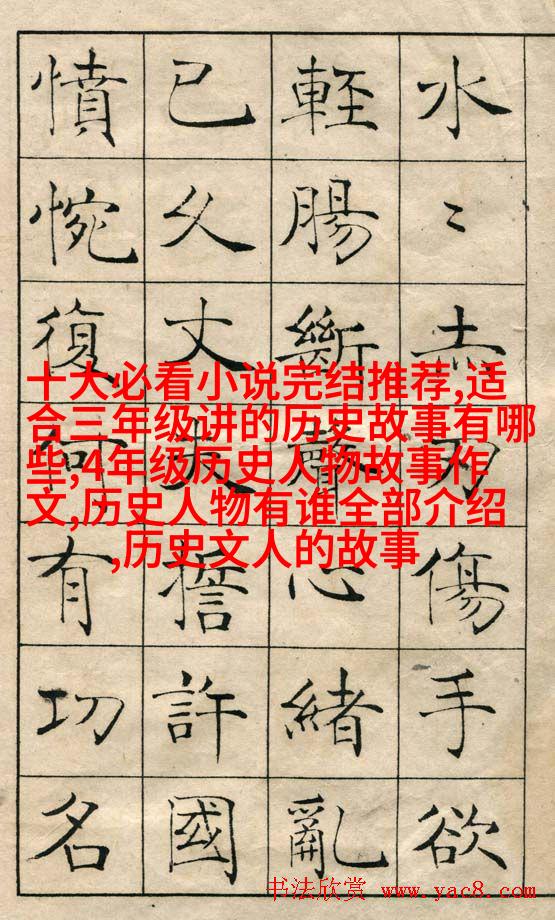 水〻赤刃傷手欲
輕腸斷聲心緒亂
已久丈夫誓許國
憤惋復何有功名
十大必看小说完结推荐,适
合三年级讲的历史故事有哪
些,4年级历史人物故事作
文,历史人物有谁全部介绍
,历史文人的故事
书法欣赏 www.yac8.com